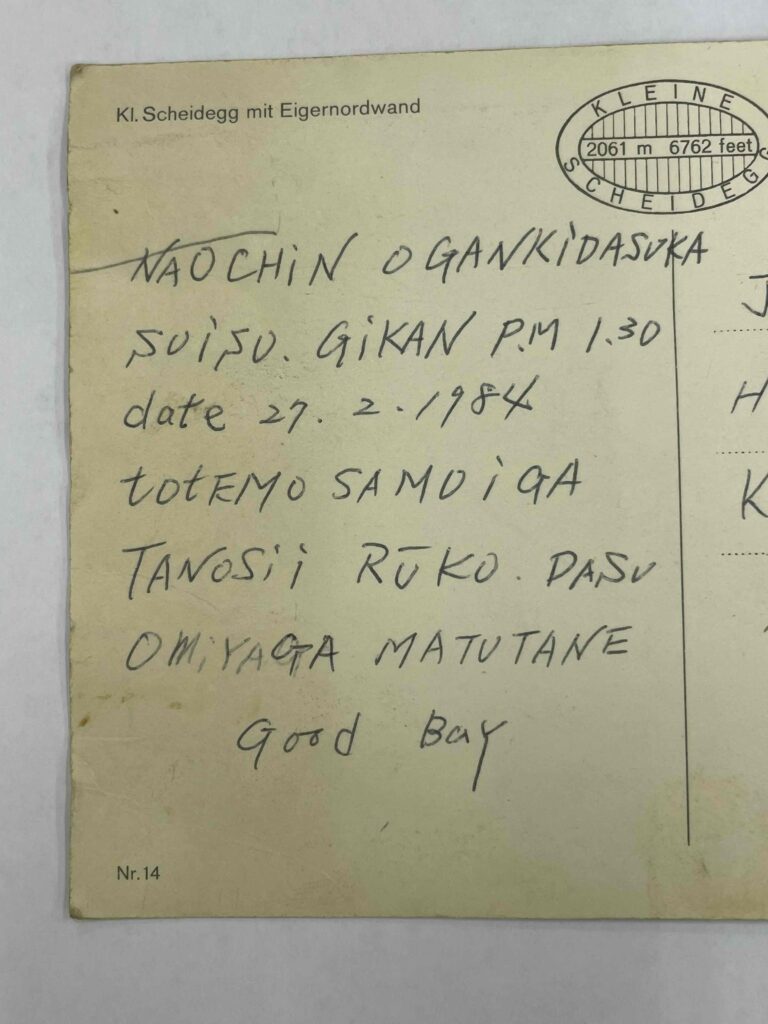 Kl. Scheidegg mit Eigernordwand
KLEINE
2061 m 6762 feet
SCHEIDEGG
NAOCHiN OGANKiDASUKA
SUiSU. GiKAN P.M 1.30
date 27. 2. 1984
totEMO SAMUiGA
TANOSii RŪKO. DASU
OMiYAGA MATUTANE
Good Bay
J
H
K
Nr. 14